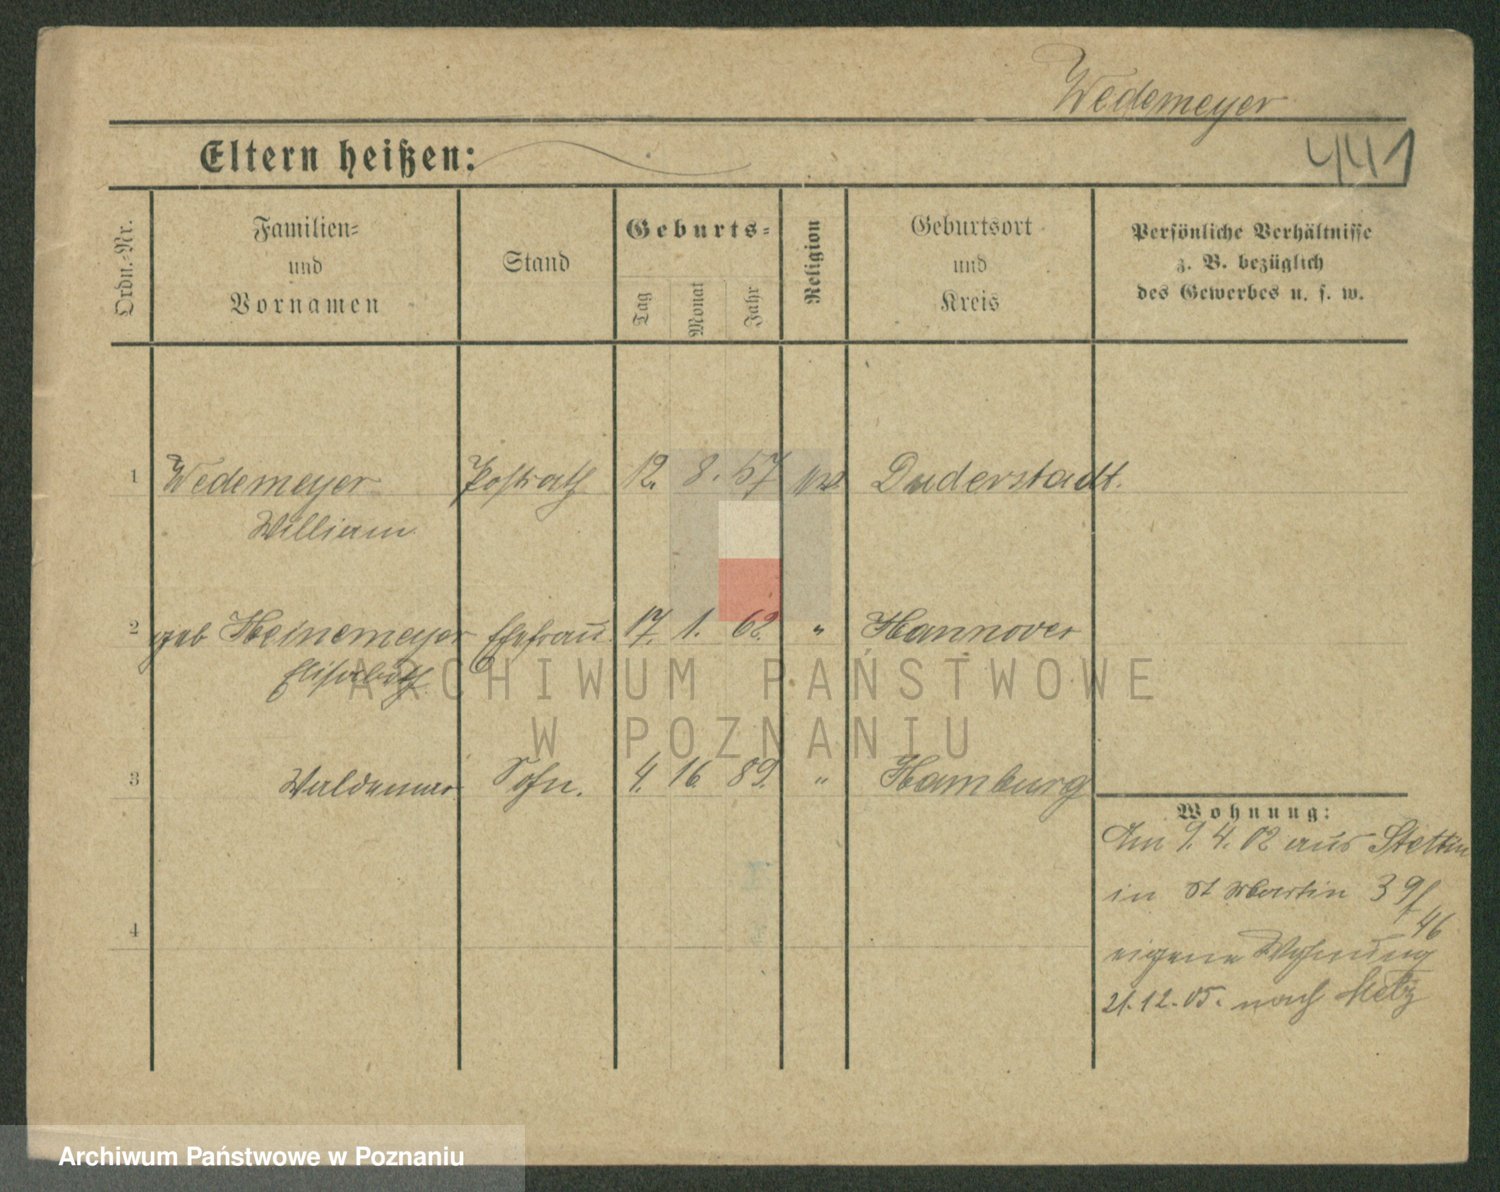 Wedemeyer
441
Eltern heißen:
Ordn.-Nr.
Familien-
und
Vornamen
Stand
Geburts-
Tag
Monat
Jahr
Religion
Geburtsort
und
Kreis
Persönliche Verhältnisse
z. B. bezüglich
des Gewerbes u. s. w.
1 Wedemeyer Postrath 12. 8. 57 Duderstadt.
William
2 geb Heinemeyer Ehefrau 17. 1. 62. " Hannover
Elisabeth
3 Waldemar Sohn. 4. 89. " Hamburg
4
Wohnung:
Am 9. 4. 02 aus Stettin
in St Martin 39/
46
eigene Wohnung
21.12.05. nach Metz
ARCHIWUM PAŃSTWOWE
W POZNANIU
Archiwum Państwowe w Poznaniu